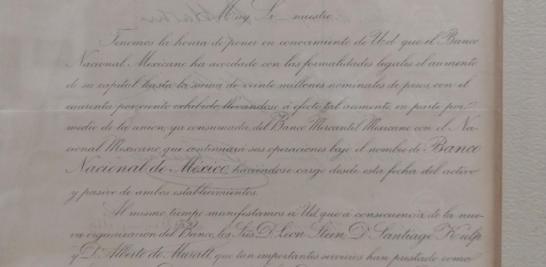 Muy Sr. nuestro
Tenemos la honra de poner en conocimiento de Ud. que el Banco
Nacional Mexicano ha acordado con las formalidades legales el aumento
de su capital hasta la suma de veinte millones nominales de pesos con el
cuarenta por ciento exhibido, llevándose á efecto tal aumento en parte por
medio de la union, ya consumada, del Banco Mercantil Mexicano con el Na-
cional Mexicano, que continuará sus operaciones bajo el nombre de Banco
Nacional de México, haciendose cargo desde esta fecha del activo
y pasivo de ambos establecimientos.
Al mismo tiempo manifestamos á Ud. que á consecuencia de la nue-
va organizacion del Banco, los Sres. D. Leon Stein, D. Santiago
y D. Alberto de que tan importantes servicios han prestado como